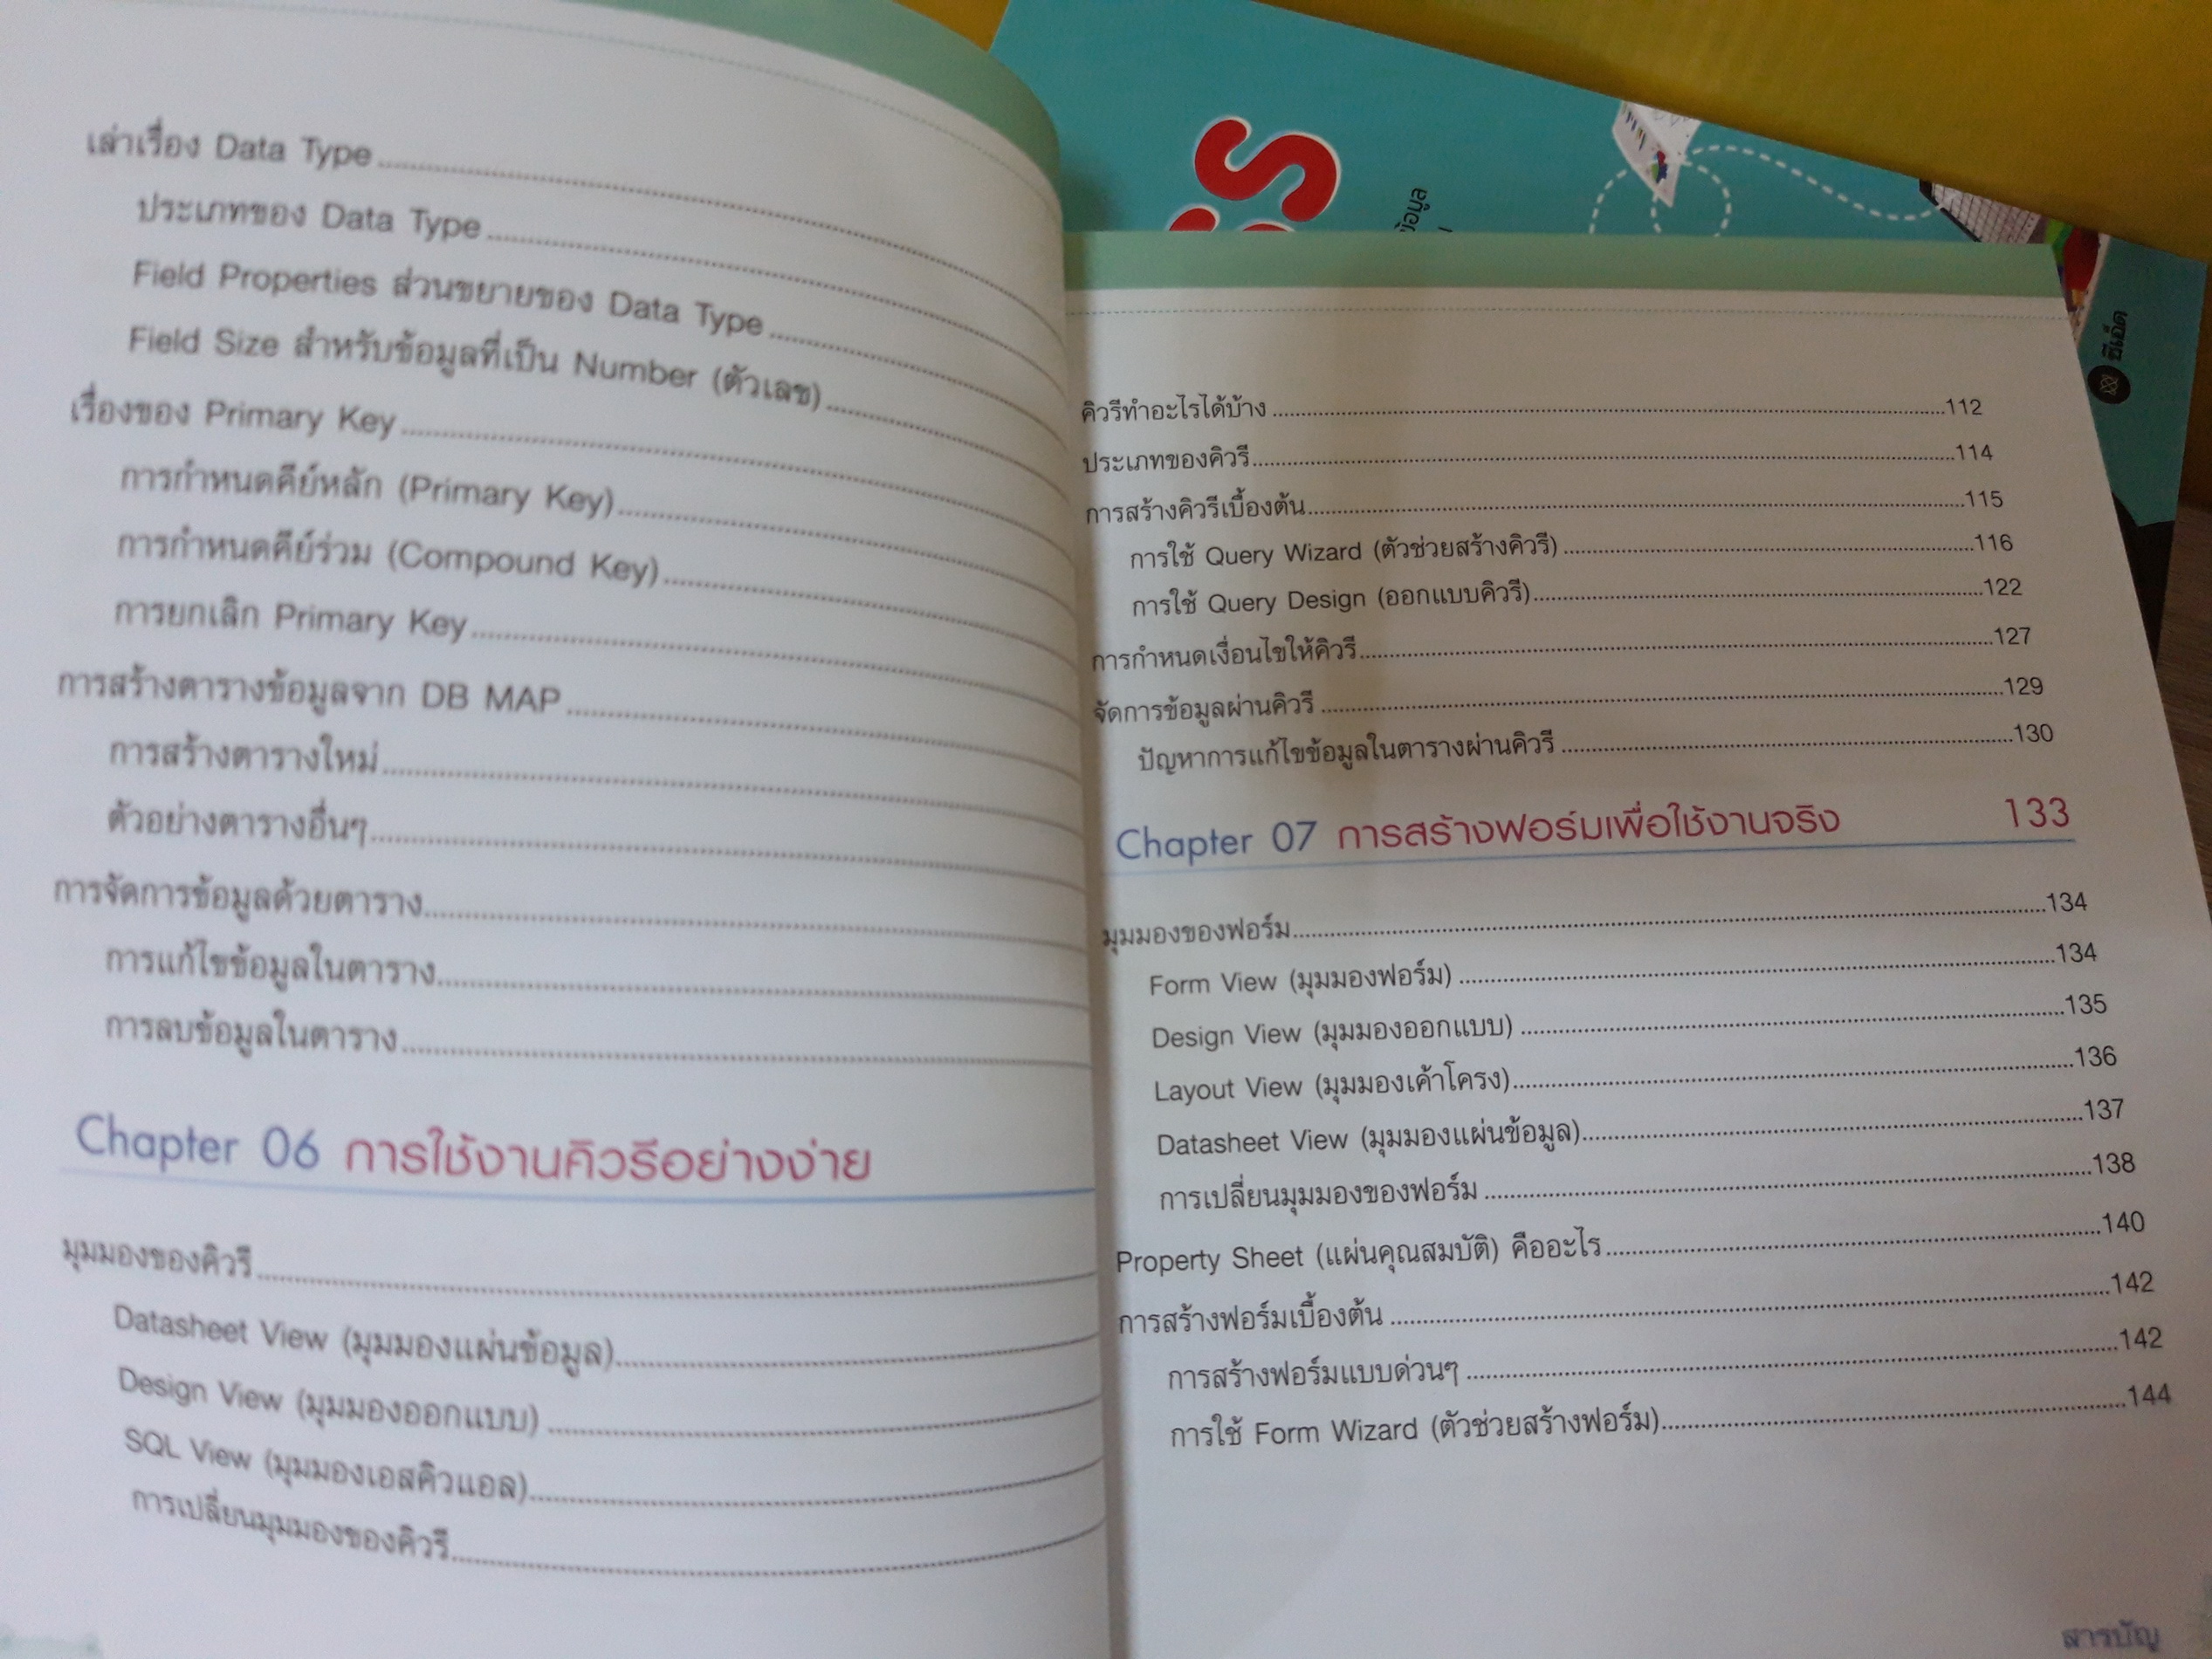 เล่าเรื่อง Data Type
ประเภทของ Data Type
Field Properties ส่วนขยายของ Data Type
Field Size สำหรับข้อมูลที่เป็น Number (ตัวเลข)
เรื่องของ Primary Key
การกำหนดคีย์หลัก (Primary Key)
การกำหนดคีย์ร่วม (Compound Key)
การยกเลิก Primary Key
การสร้างตารางข้อมูลจาก DB MAP
การสร้างตารางใหม่
ตัวอย่างตารางอื่นๆ
การจัดการข้อมูลด้วยตาราง
การแก้ไขข้อมูลในตาราง
การลบข้อมูลในตาราง
Chapter 06 การใช้งานคิวรีอย่างง่าย
มุมมองของคิวรี
Datasheet View (มุมมองแผ่นข้อมูล)
Design View (มุมมองออกแบบ)
SQL View (มุมมองเอสคิวแอล)
การเปลี่ยนมุมมองของคิวรี
คิวรีทำอะไรได้บ้าง 112
ประเภทของคิวรี 114
การสร้างคิวรีเบื้องต้น 115
การใช้ Query Wizard (ตัวช่วยสร้างคิวรี) 116
การใช้ Query Design (ออกแบบคิวรี) 122
การกำหนดเงื่อนไขให้คิวรี 127
จัดการข้อมูลผ่านคิวรี 129
ปัญหาการแก้ไขข้อมูลในตารางผ่านคิวรี 130
Chapter 07 การสร้างฟอร์มเพื่อใช้งานจริง 133
มุมมองของฟอร์ม 134
Form View (มุมมองฟอร์ม) 134
Design View (มุมมองออกแบบ) 135
Layout View (มุมมองเค้าโครง) 136
Datasheet View (มุมมองแผ่นข้อมูล) 137
การเปลี่ยนมุมมองของฟอร์ม 138
Property Sheet (แผ่นคุณสมบัติ) คืออะไร 140
การสร้างฟอร์มเบื้องต้น 142
การสร้างฟอร์มแบบด่วนๆ 142
การใช้ Form Wizard (ตัวช่วยสร้างฟอร์ม) 144
สารบัญ
ข้อมูล
ซีเอ็ด